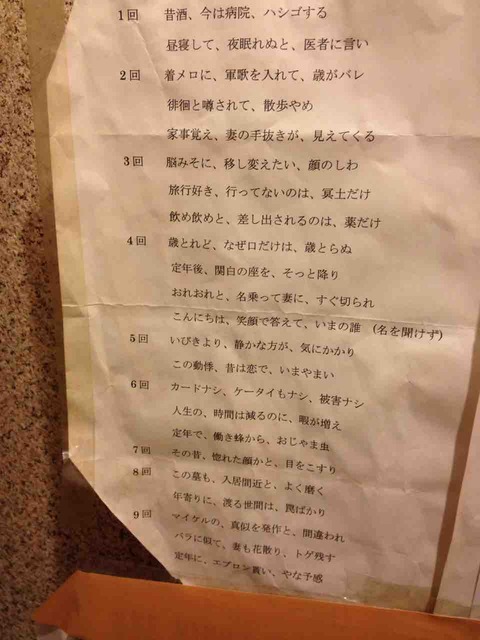 1回 昔酒、今は病院、ハシゴする
昼寝して、夜眠れぬと、医者に言い
2回 着メロに、軍歌を入れて、歳がバレ
徘徊と噂されて、散歩やめ
家事覚え、妻の手抜きが、見えてくる
3回 脳みそに、移し変えたい、顔のしわ
旅行好き、行ってないのは、冥土だけ
飲め飲めと、差し出されるのは、薬だけ
4回 歳とれど、なぜ口だけは、歳とらぬ
定年後、関白の座を、そっと降り
おれおれと、名乗って妻に、すぐ切られ
こんにちは、笑顔で答えて、いまの誰 (名を聞けず)
5回 いびきより、静かな方が、気にかかり
この動悸、昔は恋で、いまやまい
6回 カードナシ、ケータイもナシ、被害ナシ
人生の、時間は減るのに、暇が増え
定年で、働き蜂から、おじゃま虫
7回 その昔、惚れた顔かと、目をこすり
8回 この墓も、入居間近と、よく磨く
年寄りに、渡る世間は、罠ばかり
9回 マイケルの、真似を発作と、間違われ
バラに似て、妻も花散り、トゲ残す
定年に、エプロン貰い、やな予感